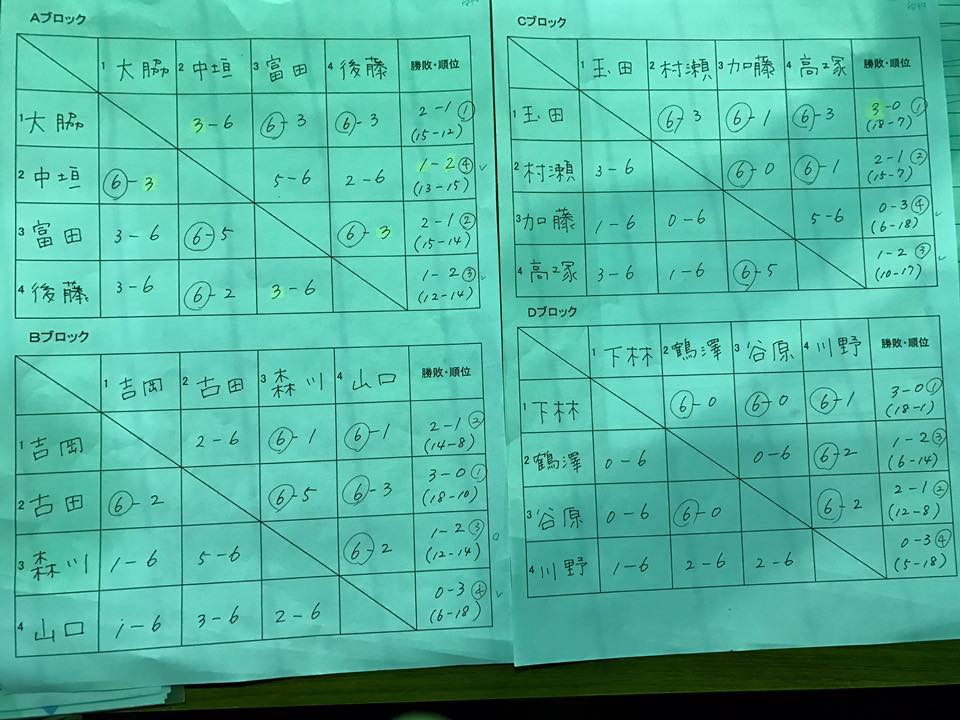 Aブロック
1 大脇 2 中垣 3 富田 4 後藤 勝敗・順位
1 大脇 3-6 ⑥-3 ⑥-3 2-1 ①
(15-12)
2 中垣 ⑥-3 5-6 2-6 1-2 ④
(13-15)
3 富田 3-6 ⑥-5 ⑥-3 2-1 ②
(15-14)
4 後藤 3-6 ⑥-2 3-6 1-2 ③
(12-14)
Bブロック
1 吉岡 2 古田 3 森川 4 山口 勝敗・順位
1 吉岡 2-6 ⑥-1 ⑥-1 2-1 ②
(14-8)
2 古田 ⑥-2 ⑥-5 ⑥-3 3-0 ①
(18-10)
3 森川 1-6 5-6 ⑥-2 1-2 ③
(12-14)
4 山口 1-6 3-6 2-6 0-3 ④
(6-18)
Cブロック
1 玉田 2 村瀬 3 加藤 4 高塚 勝敗・順位
1 玉田 ⑥-3 ⑥-1 ⑥-3 3-0 ①
(18-7)
2 村瀬 3-6 ⑥-0 ⑥-1 2-1 ②
(15-7)
3 加藤 1-6 0-6 5-6 0-3 ④
(6-18)
4 高塚 3-6 1-6 ⑥-5 1-2 ③
(10-17)
Dブロック
1 下林 2 鶴澤 3 谷原 4 川野 勝敗・順位
1 下林 ⑥-0 ⑥-0 ⑥-1 3-0 ①
(18-1)
2 鶴澤 0-6 0-6 ⑥-2 1-2 ③
(6-14)
3 谷原 0-6 ⑥-0 ⑥-2 2-1 ②
(12-8)
4 川野 1-6 2-6 2-6 0-3 ④
(5-18)